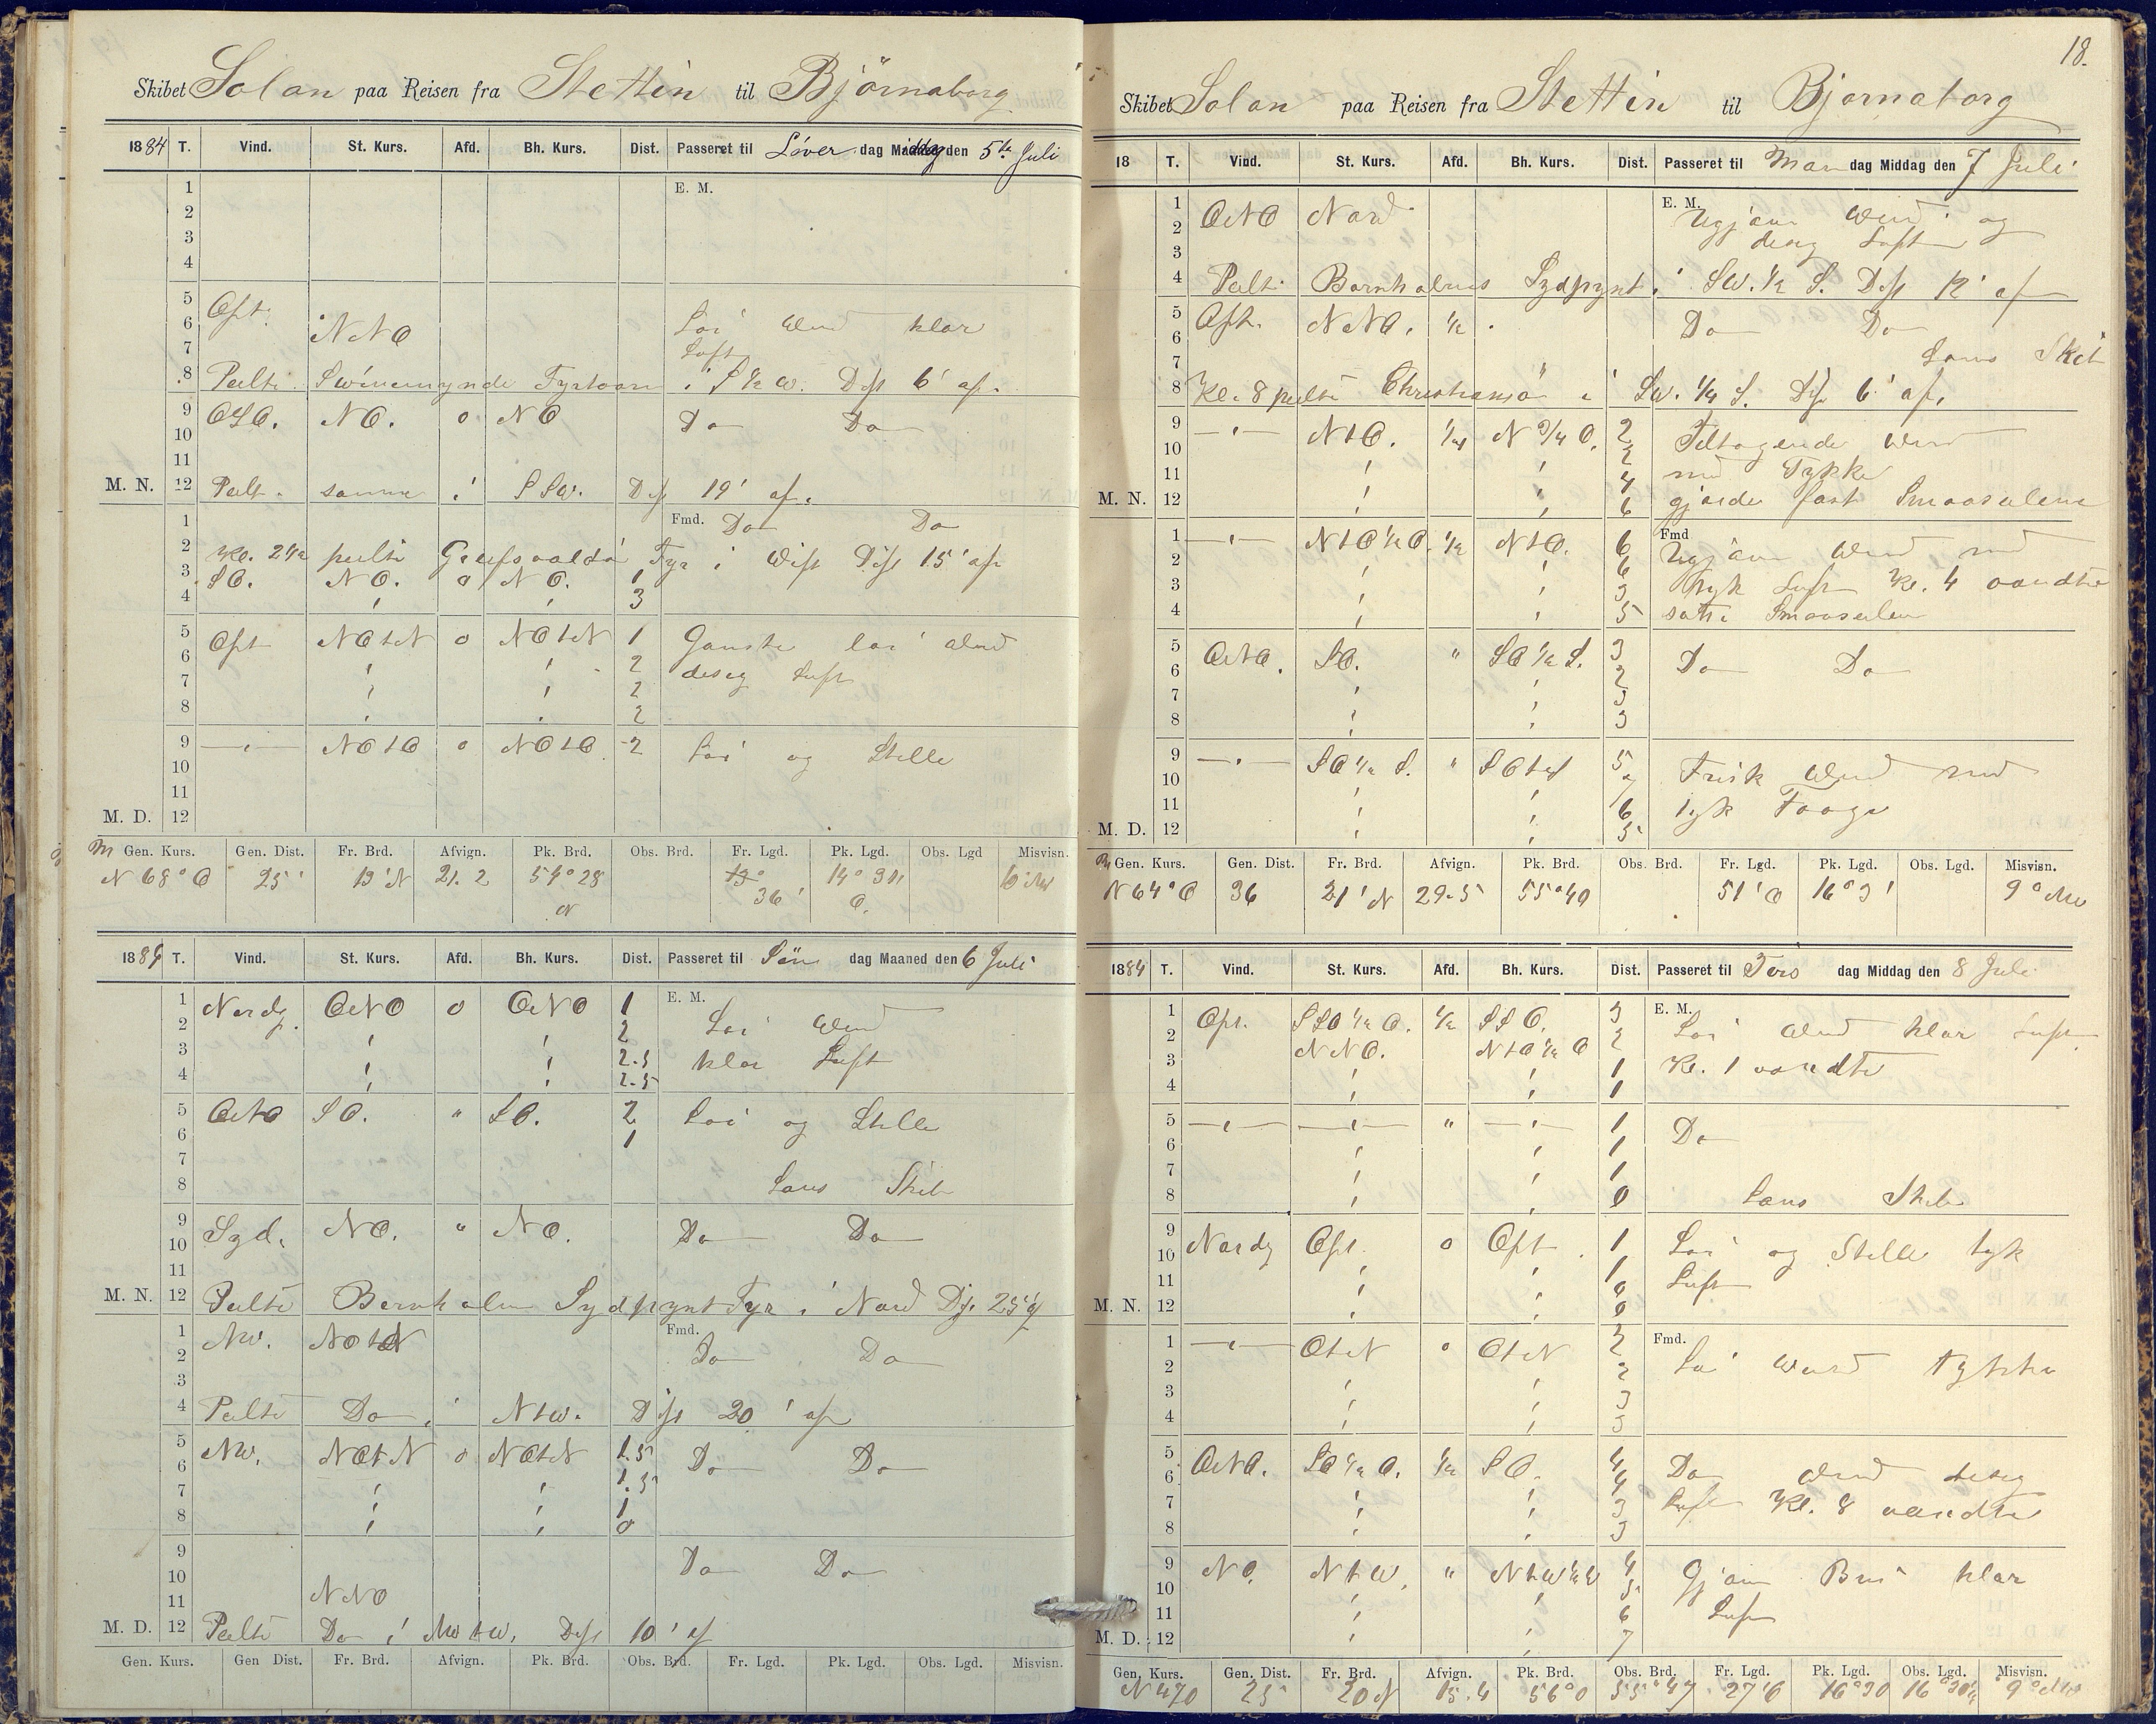 18.
Skibet Solon paa Reisen fra Stettin til Björnaborg
1884 T. Vind. St. Kurs. Afd. Bh. Kurs. Dist. Passeret til Löver dag Middag den 5te Juli
1 E. M.
2
3
4
5 Ost.
6 NNO Löi Vind klar
7 Luft
8 Peilte Swinemynde Fyrtaarn i S ½ W. Dist 6' af.
9 OSO. NO. 0 NO Do Do
10
11
M. N. 12 Peilt. samme i SSW. Dist 19' af.
1 Fmd. Do Do
2 Kl. 2½ peilte Greifsvaldö Fyr i West Dist 15' af
3 SO. NO. 0 NO. 1
4 ' ' 3
5 Ost NOtN 0 NOtN 1 Ganske löi Vind
6 ' ' 2 diseg Luft
7 ' ' 2
8 ' ' 2
9 —'— NOtO 0 NOtO 2 Löi og Stille
10
11
M. D. 12
Gen. Kurs. Gen. Dist. Fr. Brd. Afvign. Pk. Brd. Obs. Brd. Fr. Lgd. Pk. Lgd. Obs. Lgd Misvisn.
N 68° O 25' 13' N 21.2 54° 28 N 36' 14° 31 O.
1884 T. Vind. St. Kurs. Afd. Bh. Kurs. Dist. Passeret til Sön dag Maaned den 6 Juli
1 Nordg. ONO 0 ONO 1 E. M.
2 ' ' 2 Löi Vind
3 ' ' 2.5 klar Luft
4 ' ' 2.5
5 ONO SO. " SO. 2 Löi og Stille
6 1
7
8 Lens Skib
9 Syd. NO. " NO. Do Do
10
11
M. N. 12 Peilte Bornholms Sydpynt Fyr i Nord Dist 25' af
1 NW. NOtN Fmd.
2 Do Do
3
4 Peilte Do i NtW. Dist 20' af
5 NW. NOtN 0 NOtN 1.5 Do Do
6 ' ' 1.5
7 ' ' 1
8 ' ' 0
9 Do Do
10
11 NNO
M. D. 12 Peilte Do i NWtW. Dist 10' af
Gen. Kurs. Gen Dist. Fr. Brd. Afvign. Pk. Brd. Obs. Brd. Fr. Lgd. Pk. Lgd. Obs. Lgd. Misvisn.
Skibet Solon paa Reisen fra Stettin til Bjornaborg
18 T. Vind. St. Kurs. Afd. Bh. Kurs. Dist. Passeret til Man dag Middag den 7 Juli
1 ONO Nord E. M. Ugjævn Vind og
2 diseg Luft
3
4 Peilt Bornholms Sydpynt i SW. ½ S. Dist 12' af
5 Ost. NNO. ½ Do Do
6
7 Lens Skib
8 Kl. 8 peilte Christiansö i SW. ¼ S. Dist 6' af.
9 —'— NtO. ¼ N ¾ O. 2 Tiltagende Vind
10 ' ' 2 med Tykke
11 ' ' 4
M. N. 12 ' ' 6 gjorde fast Smaaseilene
1 —'— NtO ½ O. ½ NtO. 6 Fmd Ugjævn Vind med
2 ' ' 6
3 ' ' 3 tyk Luft Kl. 4 vandte
4 ' ' 5 satte Smaaseilene
5 ONO. SO. " SO ½ S. 3
6 ' ' 2 Do Do
7 ' ' 3
8 ' ' 3
9 —'— SO ½ S. " SOtS 5 Frisk Vind med
10 ' ' 7
11 ' ' 6 tyk Taage
M. D. 12 ' ' 5
Gen. Kurs. Gen. Dist. Fr. Brd. Afvign. Pk. Brd. Obs. Brd. Fr. Lgd. Pk. Lgd. Obs. Lgd. Misvisn.
N 64° O 36 21' N 29.5 55° 40 51' O 16° 3' 9° NW
1884 T. Vind. St. Kurs. Afd. Bh. Kurs. Dist. Passeret til Tirs dag Middag den 8 Juli
1 Ost. SSO ½ O. ½ SSO. 3 E. M. Löi Vind klar Luft
2 NNO. NtO ½ O 2
3 ' ' 1 Kl. 1 vandte
4 ' ' 1
5 —'— —'— " —'— 1 Do
6 ' ' 1
7 ' ' 1
8 ' ' 0 Lens Skib
9 Nordg Ost. 0 Ost. 1 Löi og Stille tyk
10 ' ' 1 Luft
11 ' ' 0
M. N. 12 ' ' 0
1 —'— OtN 0 OtN 2 Fmd.
2 ' ' 2 Löi Vind Tykke
3 ' ' 3
4 ' ' 3
5 ONO. SO ½ O. ½ SO. 4 Do Vind diseg
6 ' ' 4
7 ' ' 3 Luft Kl. 8 vandte
8 ' ' 3
9 NO. NtW. " NtW ½ W 4 Gjævn Bris klar
10 ' ' 5
11 ' ' 6 Luft
M. D. 12 ' ' 7
Gen. Kurs. Gen. Dist. Fr. Brd. Afvign. Pk. Brd. Obs. Brd. Fr. Lgd. Pk. Lgd. Obs. Lgd. Misvisn.
N 47 O 25' 20 N 15.4 56° 0 55° 47 27' O 16° 30 16° 30' 9° NW